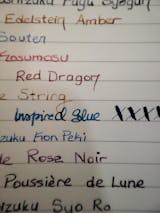 Fuyu Syogun
Edelstein Amber
Souten
Kosumosu
Red Dragon
String
Inspired Blue XXXX
Kon Peki
Rose Noir
Poussière de Lune
Syo Ro